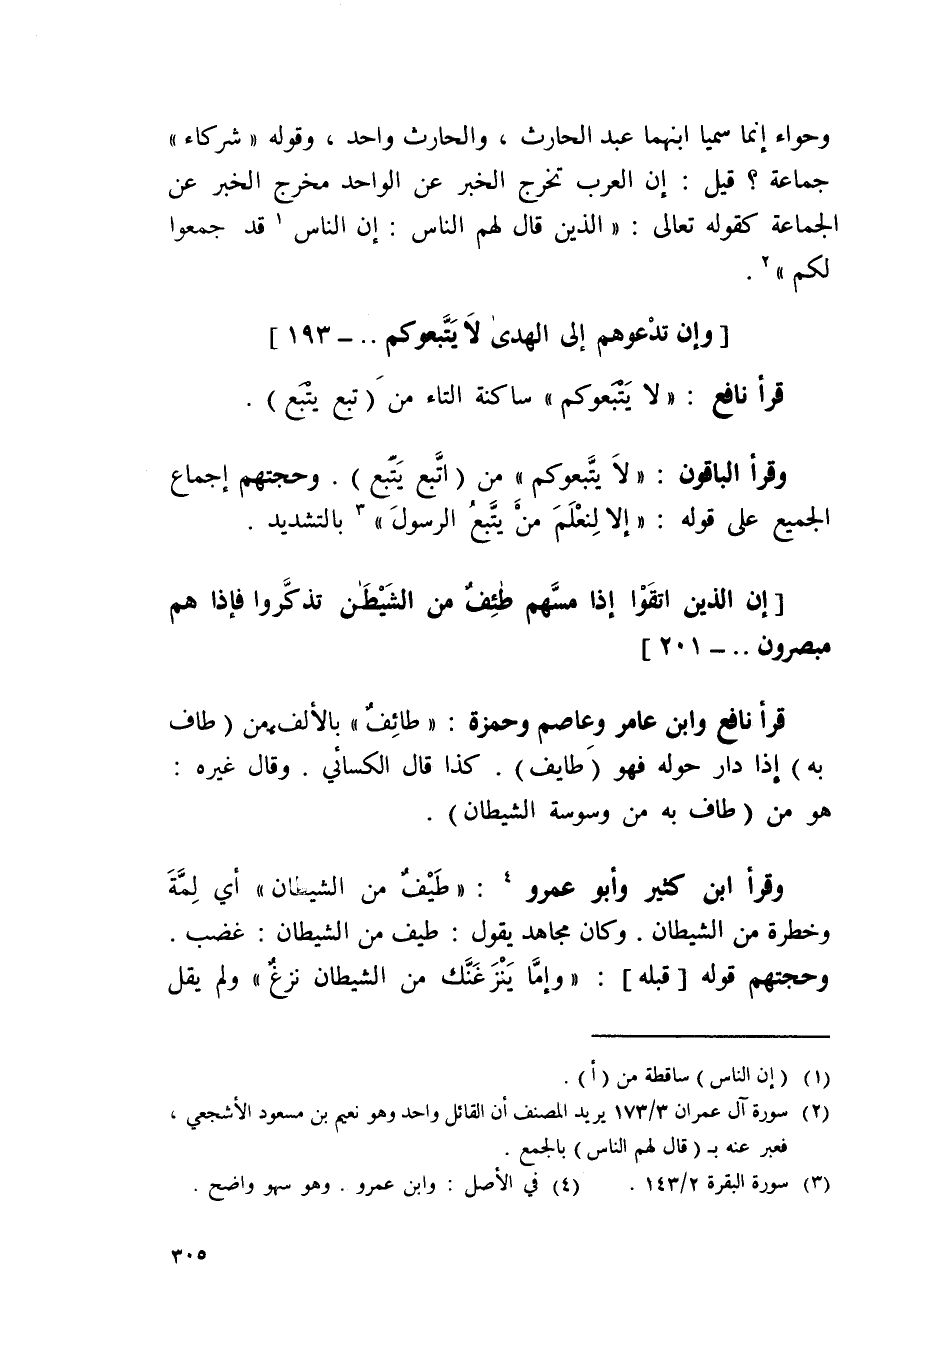 وحواء إنما سميا ابنهما عبد الحارث ، والحارث واحد ، وقوله « شركاء »
جماعة ؟ قيل : إن العرب تخرج الخبر عن الواحد مخرج الخبر عن
الجماعة كقوله تعالى : « الذين قال لهم الناس : إن الناس ١ قد جمعوا
لكم » ٢ .
[ وإن تدْعوهم إلى الهدىٰ لاَ يَتَّبعوكم .. ــ ١٩٣ ]
قرأ نافع : « لا يَتْبَعوكم » ساكنة التاء من ( تبع يتْبَع ) .
وقرأ الباقون : « لاَ يتَّبعوكم » من ( اتَّبع يَتَّبع ) . وحجتهم إجماع
الجميع على قوله : « إلا لِنعْلَمَ منْ يتَّبعُ الرسولَ » ٣ بالتشديد .
[ إن الذين اتقَوْا إذا مسَّهم طٰئِفٌ من الشَيْطَٰن تذكَّروا فإذا هم
مبصرون .. ــ ٢٠١ ]
قرأ نافع وابن عامر وعاصم وحمزة : « طائِفٌ » بالألف من ( طاف
به ) إذا دار حوله فهو ( طايف ) . كذا قال الكسائي . وقال غيره :
هو من ( طاف به من وسوسة الشيطان ) .
وقرأ ابن كثير وأبو عمرو ٤ : « طَيْفٌ من الشيطان » أي لِمَّةَ
وخطرة من الشيطان . وكان مجاهد يقول : طيف من الشيطان : غضب .
وحجتهم قوله [ قبله ] : « وإمَّا يَنْزَغَنَّك من الشيطان نزغٌ » ولم يقل
(١) ( إن الناس ) ساقطة من ( أ ) .
(٢) سورة آل عمران ١٧٣/٣ يريد المصنف أن القائل واحد وهو نعيم بن مسعود الأشجعي ،
فعبر عنه بـ ( قال لهم الناس ) بالجمع .
(٣) سورة البقرة ١٤٣/٢ . (٤) في الأصل : وابن عمرو . وهو سهو واضح .
٣٠٥